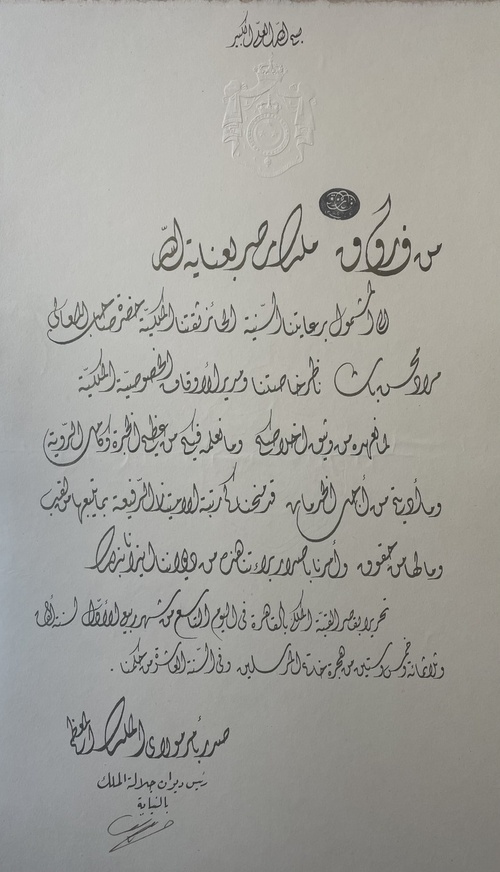 بسم الله العلي الكبير
من فاروق ملك مصر بعناية الله
الى المشمول برعايتنا السنية الحائز ثقتنا الملكية حضرة صاحب المعالى
مراد محسن باشا ناظر خاصتنا ومدير الأوقاف الخصوصية الملكية
لما نعهده من وثيق اخلاصكم وما نعلمه فيكم من عظيم الخبرة وكامل الروية
وما أديتم من أجل الخدمات قد منحناكم رتبة الامتياز الرفيعة بما يتبعها من لقب
وما لها من حقوق وأمرنا باصدار براءتنا هذه من ديواننا ايذانا بذلك
تحريرا بقصر القبة الملكى بالقاهرة فى اليوم التاسع من شهر ربيع الأول لسنة ألف
وثلاثمائة وخمس وستين من هجرة خاتم المرسلين وفى السنة العاشرة من حكمنا .
صدر بأمر مولاى الملك المعظم
رئيس ديوان جلالة الملك
بالنيابة